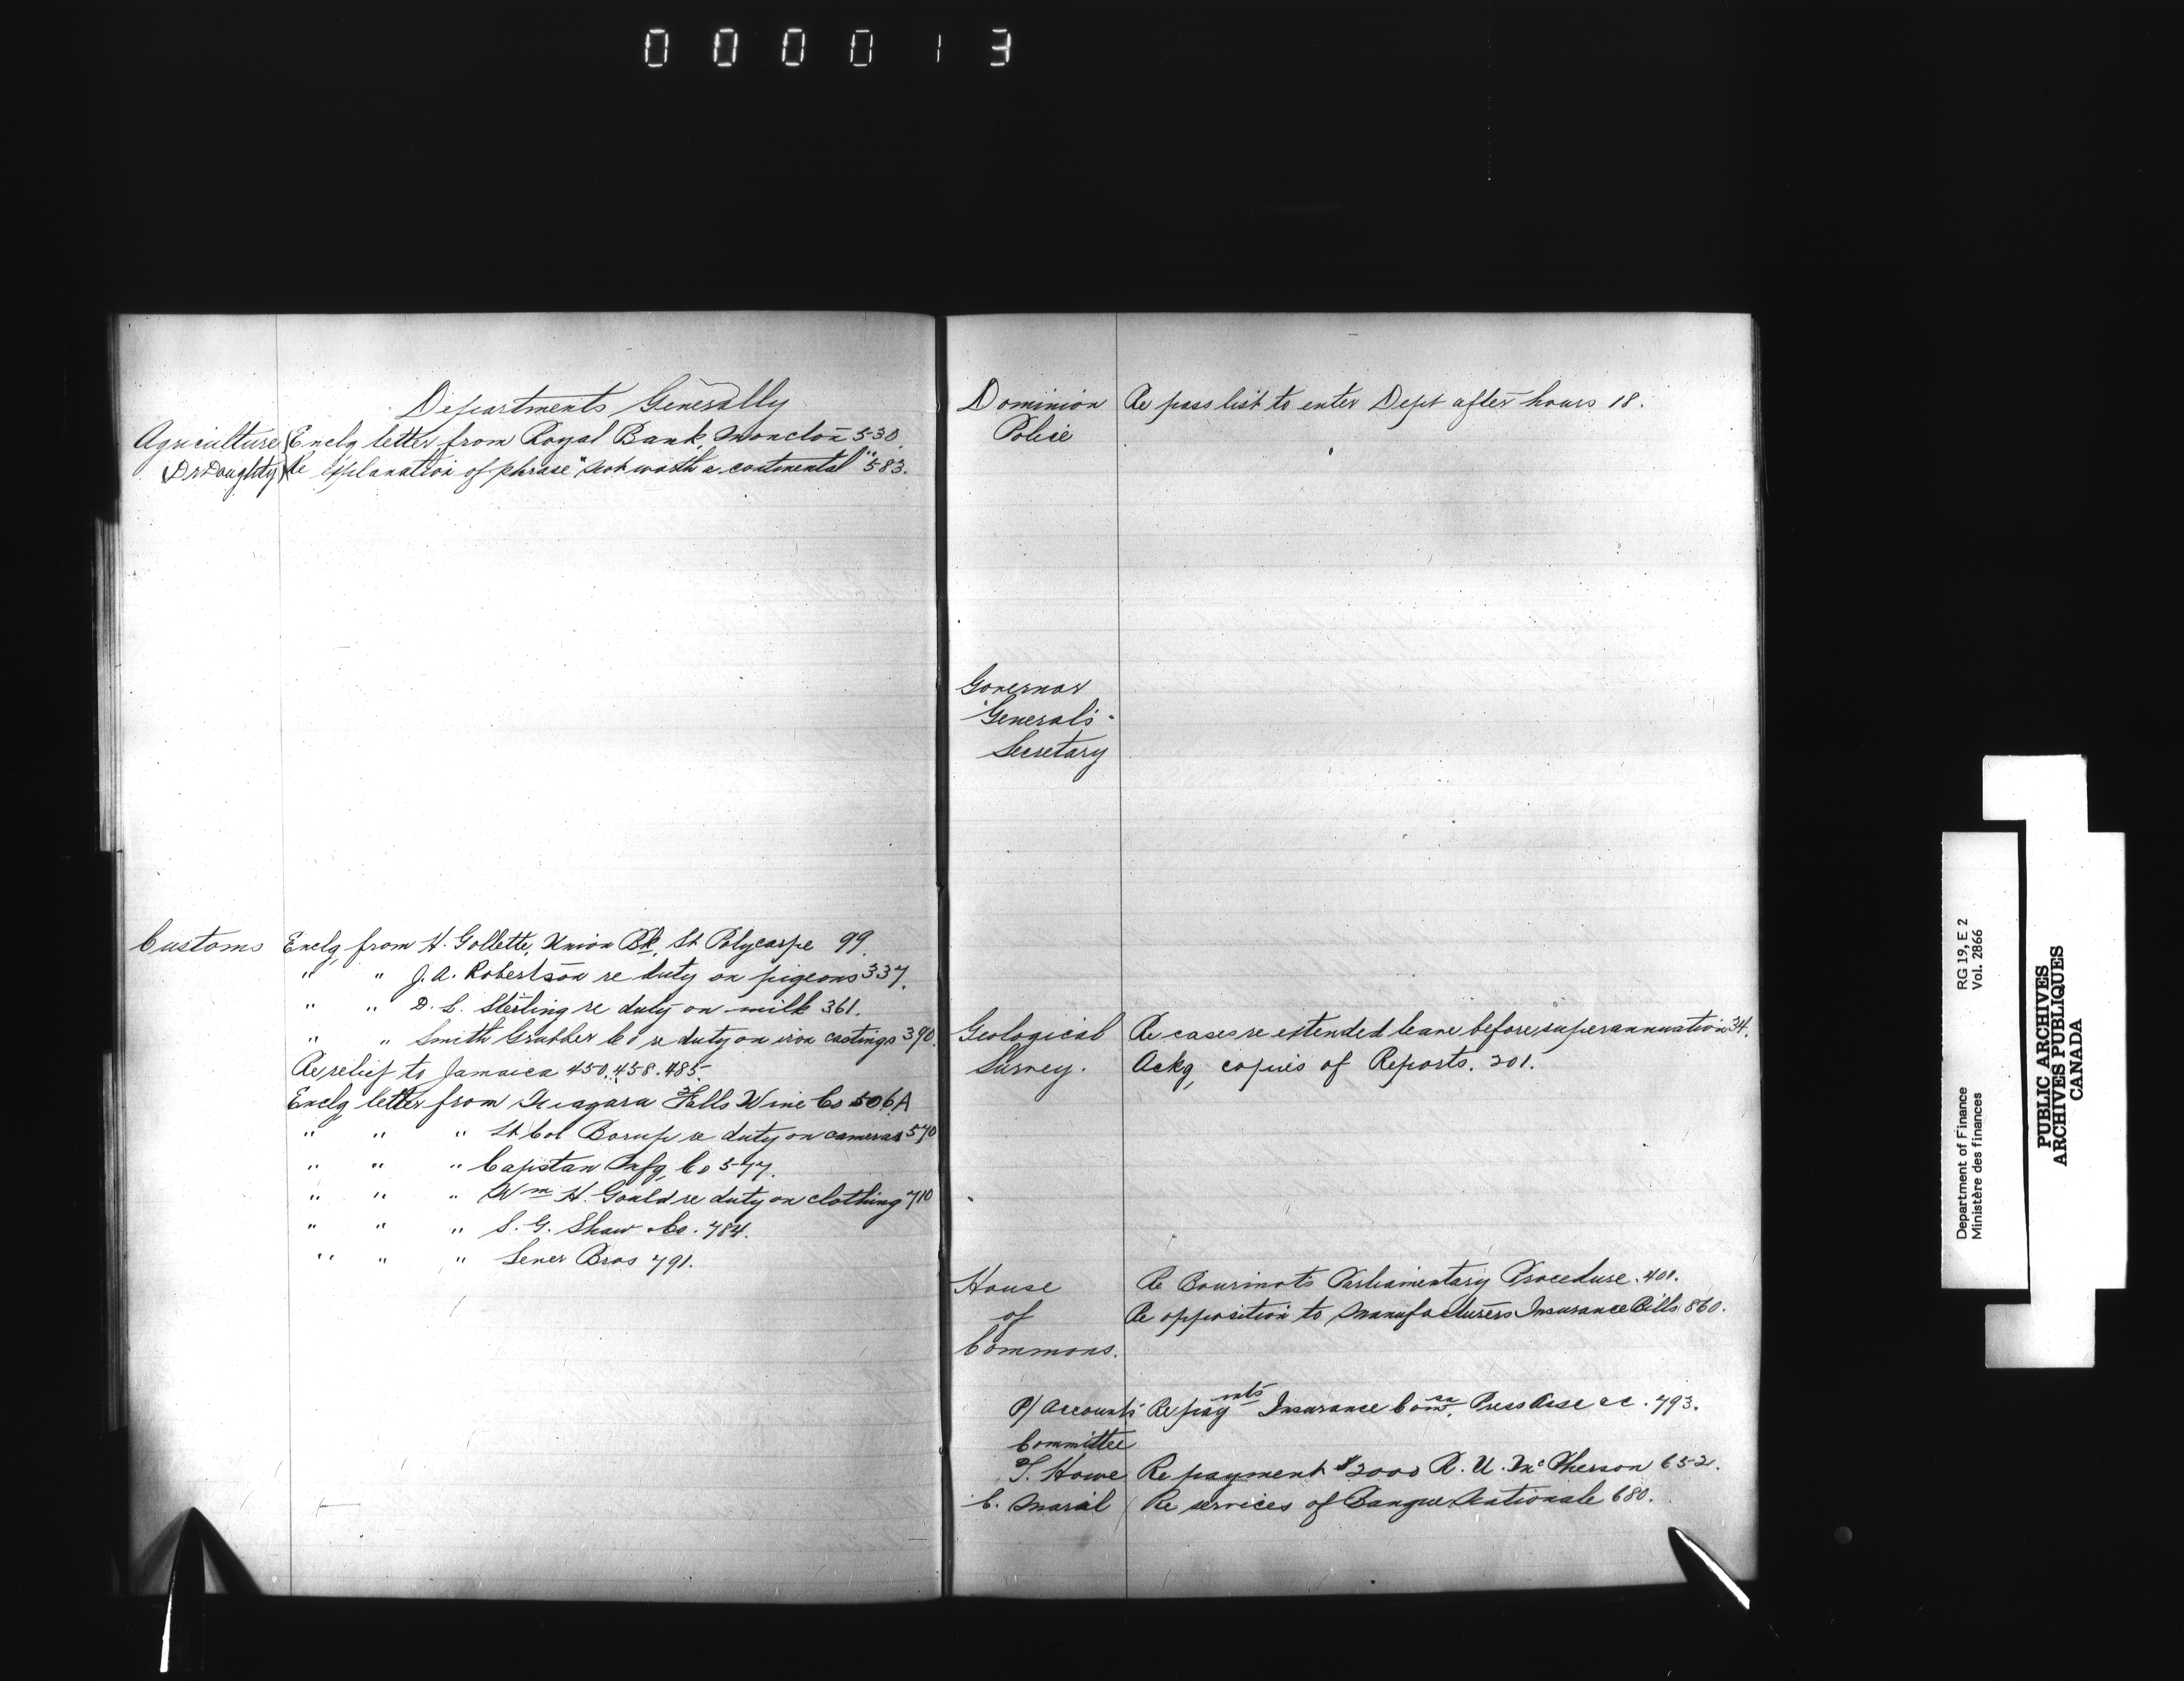 000013
Departments Generally
Agriculture Enclg letter from Royal Bank, Moncton 530.
(Dr Doughty) Re explanation of phrase "not worth a continental" 583.
Customs Enclg from H. Gollette, Union Bk, St Polycarpe 99.
" " J. A. Robertson re duty on pigeons 337.
" " D. L. Sterling re duty on milk 361.
" " Smith Grubber Co re duty on iron castings 390.
Re relief to Jamaica 450.458.485.
Enclg letter from Niagara Falls Wine Co 506A
" " " Lt Col Borup re duty on cameras 570
" " " Capstan Mfg Co 577.
" " " Wm H. Gould re duty on clothing 710
" " " S. G. Shaw Co. 784.
" " " Lener Bros 791.
Dominion Re pass list to enter Dept after hours 18.
Police
Governor
General's
Secretary
Geological Re cases re extended leave before superannuation 34.
Survey. Ackg copies of Reports. 201.
House Re Bourinot's Parliamentary Procedure. 401.
of Re opposition to Manufacturers Insurance Bills 860.
Commons.
P/ Accounts Re paymts Insurance Comsn. Press Asse &c. 793.
Committee
T. Howe Re payment $2000 R. U. McPherson 652.
C. Marcil Re services of Banque Nationale 680.
RG 19, E 2
Vol. 2866
Department of Finance
Ministère des finances
PUBLIC ARCHIVES
ARCHIVES PUBLIQUES
CANADA